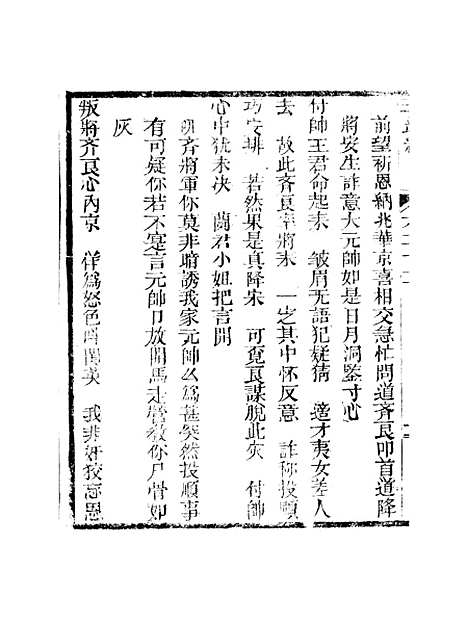 前望祈恩納兆華京喜相交急忙問道齐良叩首道降
將安生詐意大元帥如是日月洞鉴寸心
付帥王君命起來　皱眉无語犯疑猜　適才夷女差人
去　故此齐良率將來　一之其中怀反意　詐称投順
巧安排　若然果是真降宋　可覓良謀脫此灾　付帥
心中犹未決　蘭君小姐把言開
齐將軍你莫非暗誘我家元帥么為甚突然投順事
有可疑你若不寔言元帥日放開馬走管教你尸骨如
灰
叛將齐良心内京　佯為怒色　英　我非奸狡忘恩